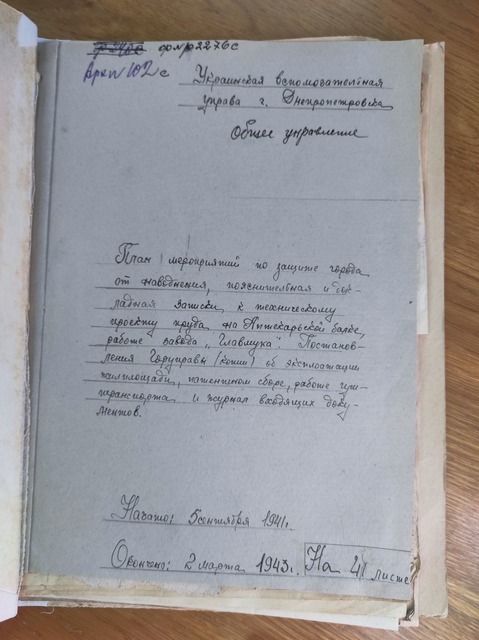 ф. 2406 ф№р2276с
Архп 102с
Украинская вспомогательная
управа г. Днепропетровска
Общее управление
План мероприятий по защите города
от наводнения, пояснительная и док-
ладная записки к техническому
проекту пруда на Аптекарьской балке,
работе завода „Главмука" Постанов-
ления Горуправы /копии/ об эксплоатации
жилплощади, патентном сборе, работе
транспорта и журнал входящих доку-
ментов.
Начато: 5 сентября 1941 г.
Окончено: 2 марта 1943 г. На 41 листе